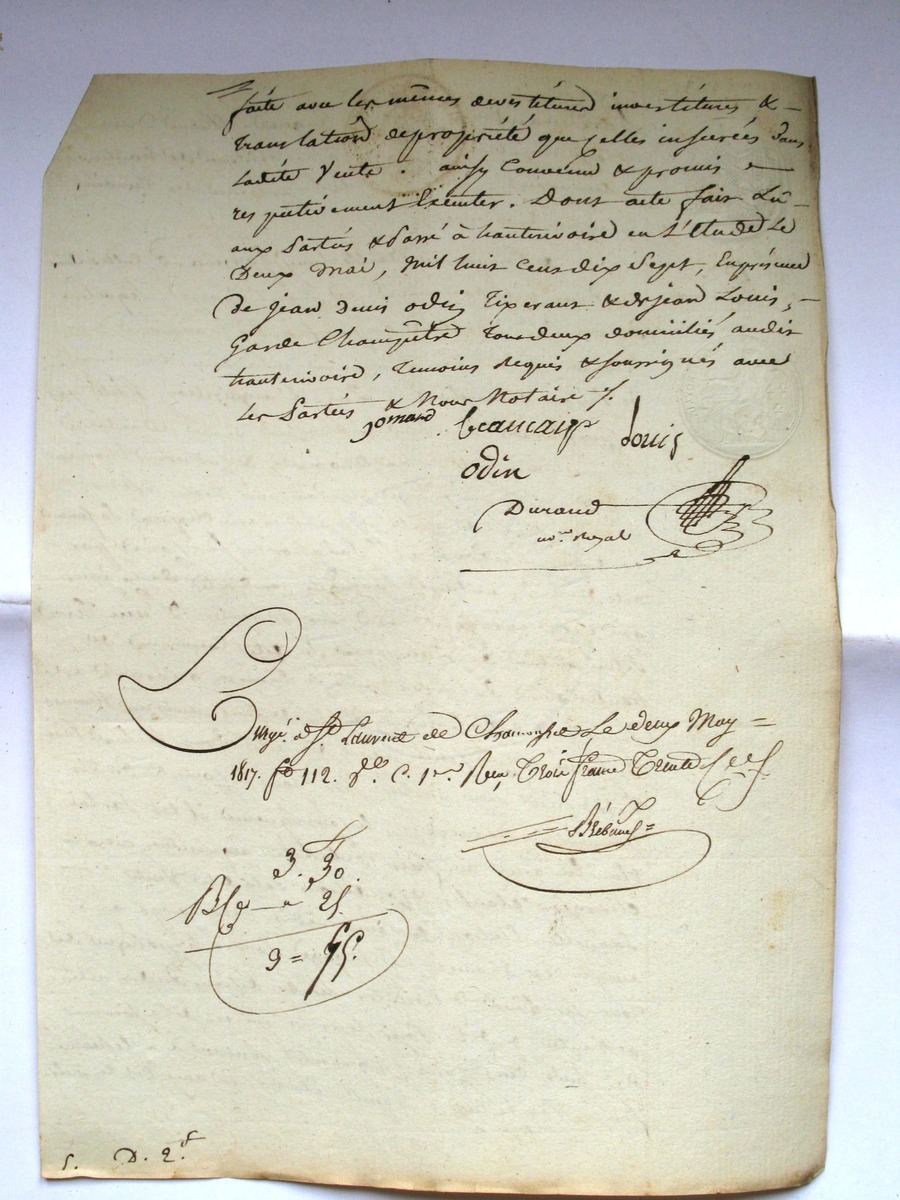 faite avec les mêmes devestitures investitures &
translation de propriété que celles inserées dans
ladite Vente. ainsy Convenu & promis
respectivement Executer. Dont acte fait Lû
aux Parties & Passé à hauterivoire en L'Etude Le
Deux mai, Mil huit Cent dix Sept, En présence
de jean denis odin Tixerant & de jean Louis,
Garde Champêtre Tous deux domiciliés audit
hauterivoire, Temoins Requis & soussignés avec
Les Parties & Nous Notaire ./.
jomard Beaucaup Louis
odin
Durand
no.re Royal
Enregt. à St. Laurent de Chamousset Le deux May =
1817. fo 112. Vo. C. 1re. Recu Trois francs Trente
3. 30.
à 25
3 = 55.
D. 2.f